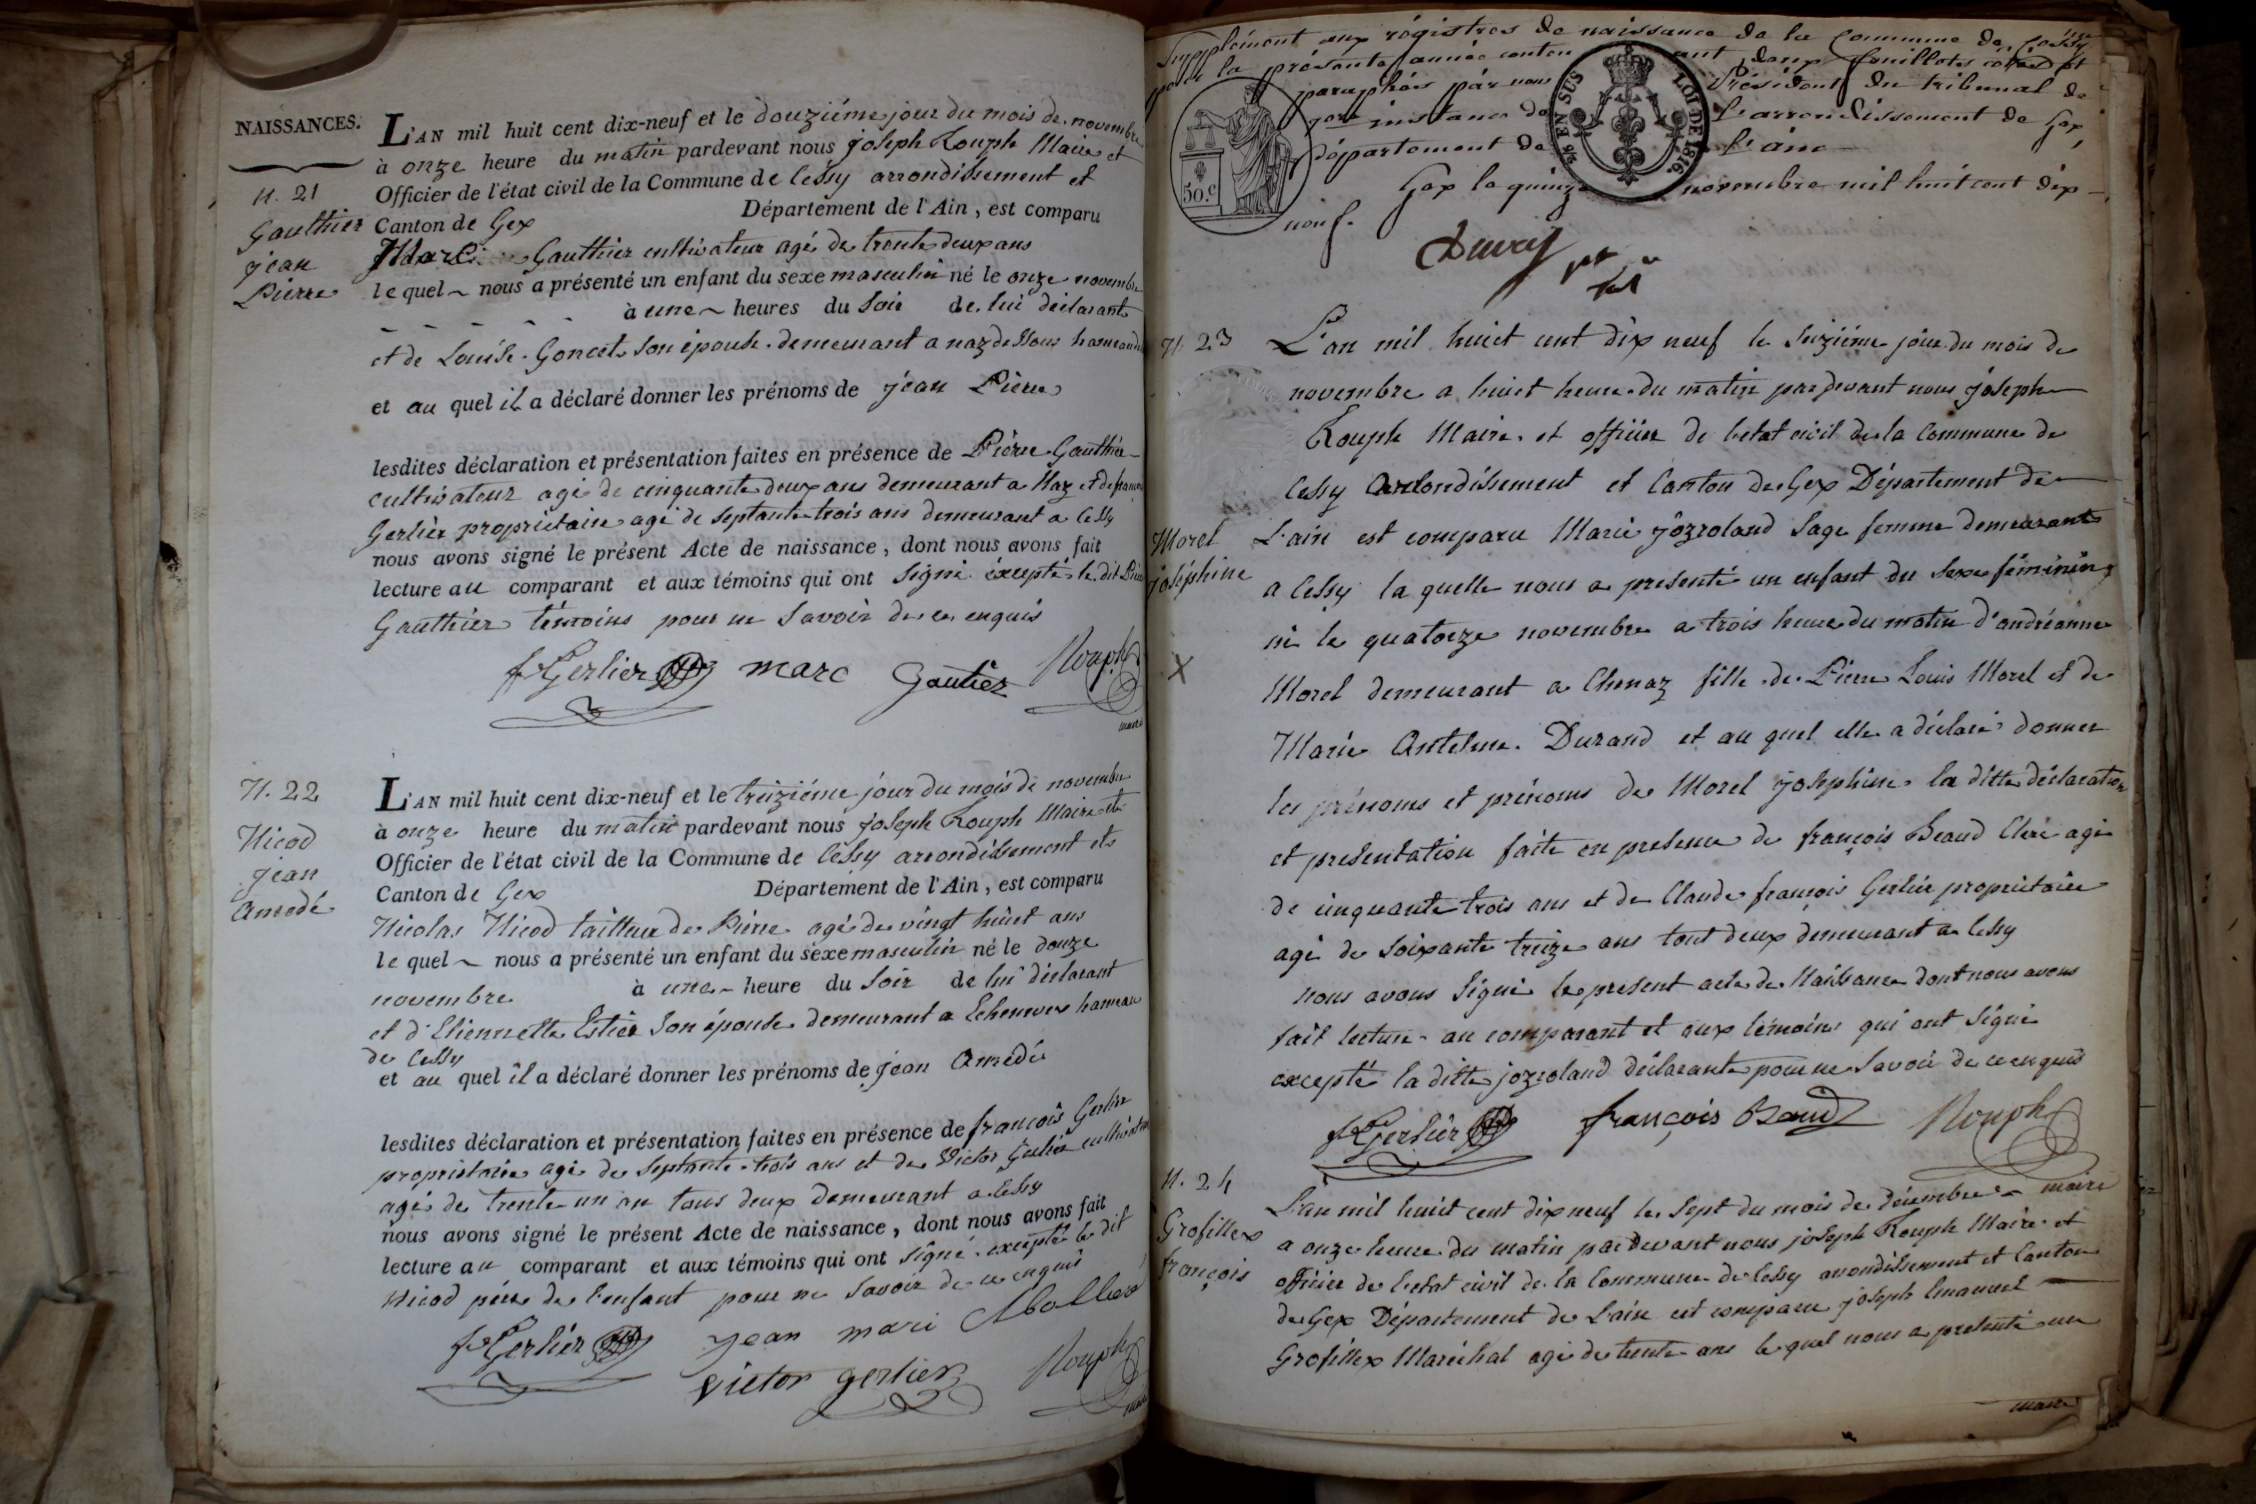 NAISSANCES.
N. 21
Gauthier
jean
Pierre
L'AN mil huit cent dix-neuf et le douziéme jour du mois de novembre
à onze heure du matin pardevant nous joseph Rouph Maire et
Officier de l'état civil de la Commune de Cessy arrondissement et
Canton de Gex Département de l'Ain, est comparu
Marc Gauthier cultivateur agé de trente deux ans
le quel ~ nous a présenté un enfant du sexe masculin né le onze novembre
à une ~ heures du soir de lui déclarant
et de Louise Goncet son épouse demeurant a naz dessous hameau
et au quel il a déclaré donner les prénoms de jean Pierre
lesdites déclaration et présentation faites en présence de Pierre Gauthier
cultivateur agé de cinquante deux ans demeurant a Naz et de francois
Gerlier propriétaire agé de septante trois ans demeurant a Cessy
nous avons signé le présent Acte de naissance, dont nous avons fait
lecture au comparant et aux témoins qui ont signé éxcepté le dit Pierre
Gauthier témoins pour ne savoir de ce enquis
f Gerlier marc Gautier Rouph
maire
N. 22
Nicod
jean
amedé
L'AN mil huit cent dix-neuf et le treiziéme jour du mois de novembre
à onze heure du matin pardevant nous joseph Rouph Maire et
Officier de l'état civil de la Commune de Cessy arrondissement et
Canton de Gex Département de l'Ain, est comparu
Nicolas Nicod tailleur de Pierre agé de vingt huit ans
le quel ~ nous a présenté un enfant du sexe masculin né le douze
novembre à une ~ heure du soir de lui déclarant
et d'Etiennette Estier son épouse demeurant a Echenevex hameau
de Cessy
et au quel il a déclaré donner les prénoms de jean amedé
lesdites déclaration et présentation faites en présence de francois Gerlier
propriétaire agé de septante trois ans et de Victor Gerlier cultivateur
agé de trente un an tous deux demeurant a Cessy
nous avons signé le présent Acte de naissance, dont nous avons fait
lecture au comparant et aux témoins qui ont signé excepté le dit
Nicod père de l'enfant pour ne savoir de ce enquis
f Gerlier jean mari
victor gerlier Rouph
maire
Supplément aux régistres de naissance de la Commune de Cessy
pour la présente année contenant deux feuillets cotés et
paraphés par nous Président du tribunal de
1ere instance de l'arrondissement de Gex,
département de l'ain
Gex le quinze novembre mil huit cent dix-
neuf.
50.c
25 EN SUS LOI DE 1816
N. 23
Morel
joséphine
X
L'an mil huict cent dix neuf le seiziéme jour du mois de
novembre a huict heure du matin pardevant nous joseph
Rouph Maire et officier de l'etat civil de la Commune de
Cessy arrondissement et Canton de Gex Département de
L'ain est comparu Marie jôzroland sage femme demeurant
a Cessy la quelle nous a presenté un enfant du sexe féminin
né le quatorze novembre a trois heure du matin d'andréanne
Morel demeurant a Chenaz fille de Pierre Louis Morel et de
Marie Antelme Durand et au quel elle a déclaré donner
les prénoms et prénoms de Morel joséphine la ditte déclaration
et presentation faite en presence de françois Beaud Clerc agé
de cinquante trois ans et de Claude francois Gerlier propriétaire
agé de soixante treize ans tout deux demeurant a Cessy
nous avons signé le present acte de Naissance dont nous avons
fait lecture au comparant et aux témoins qui ont signé
excepté la ditte jozroland déclarante pour ne savoir de ce enquis
f Gerlier françois Beaud Rouph
maire
N. 24
Grosfillex
françois
L'an mil huict cent dix neuf le sept du mois de décembre
a onze heure du matin pardevant nous joseph Rouph Maire et
officier de l'etat civil de la Commune de Cessy arrondissement et Canton
de Gex Département de L'ain est comparu joseph Emanuel
Grosfillex Maréchal agé de trente ans le quel nous a presenté un
maire